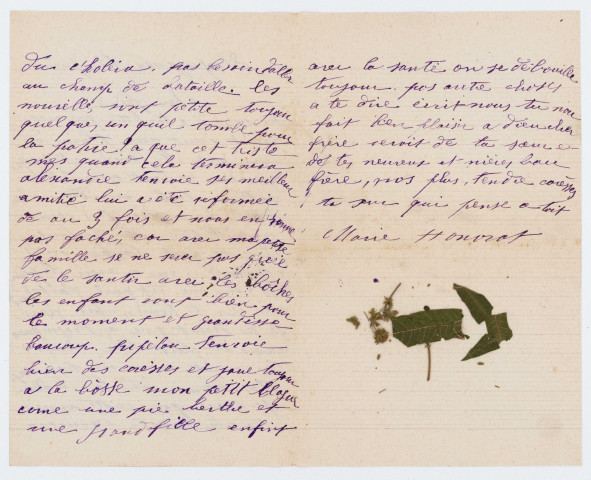 du choléra. pas besoin daller
au champ de bataille. les
nouvelle, sont petite toujour
quelque, un quil tombe pour
la patrie a que cet triste
mes quand cela terminera
alexandre tenvoie ses meilleur
amitie lui a ete reformee
de au 3 fois et nous en
pas fachés, car avec ma
famille se ne sera pas
de le santir avec les boches
les enfant vont bien pour
le moment et grandisse
beaucoup tenvoie
bien des caresses et joue toujour
a la bosse mon petit blague
come une pie berthe et
une grand fille enfint
avec la santé on se débouille
toujour. pas autre choses
a te dire écrit nous tu nou
fait bien plaisir a dieu cher
frère recois de ta sœur e
des tes neveux et nièces bau
frère, nos plus, tendre caresses
ta sœur qui pense a toit
Marie Honorat